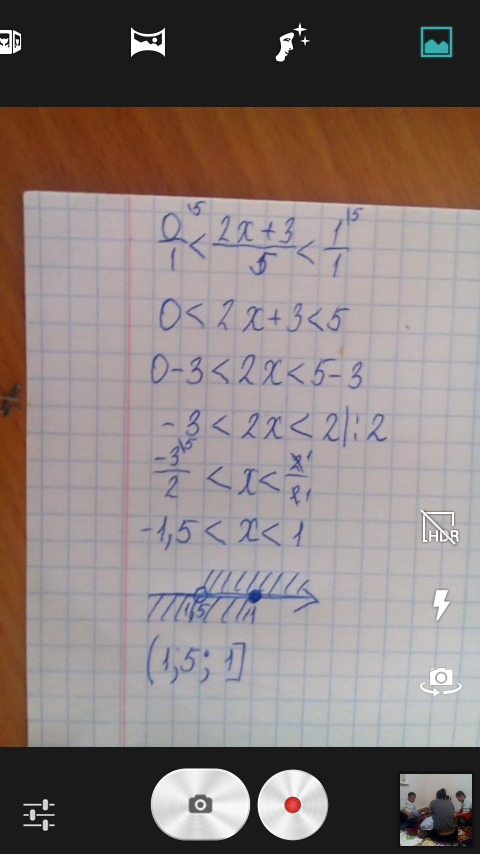 0/1 ¹⁵ < 2x+3/5 < 1/1 |5
0 < 2x+3 < 5
0-3 < 2x < 5-3
-3 < 2x < 2 |:2
-3/2 < x < 2/2
-1,5 < x < 1
1,5 1
(1;5; 1]
HDR